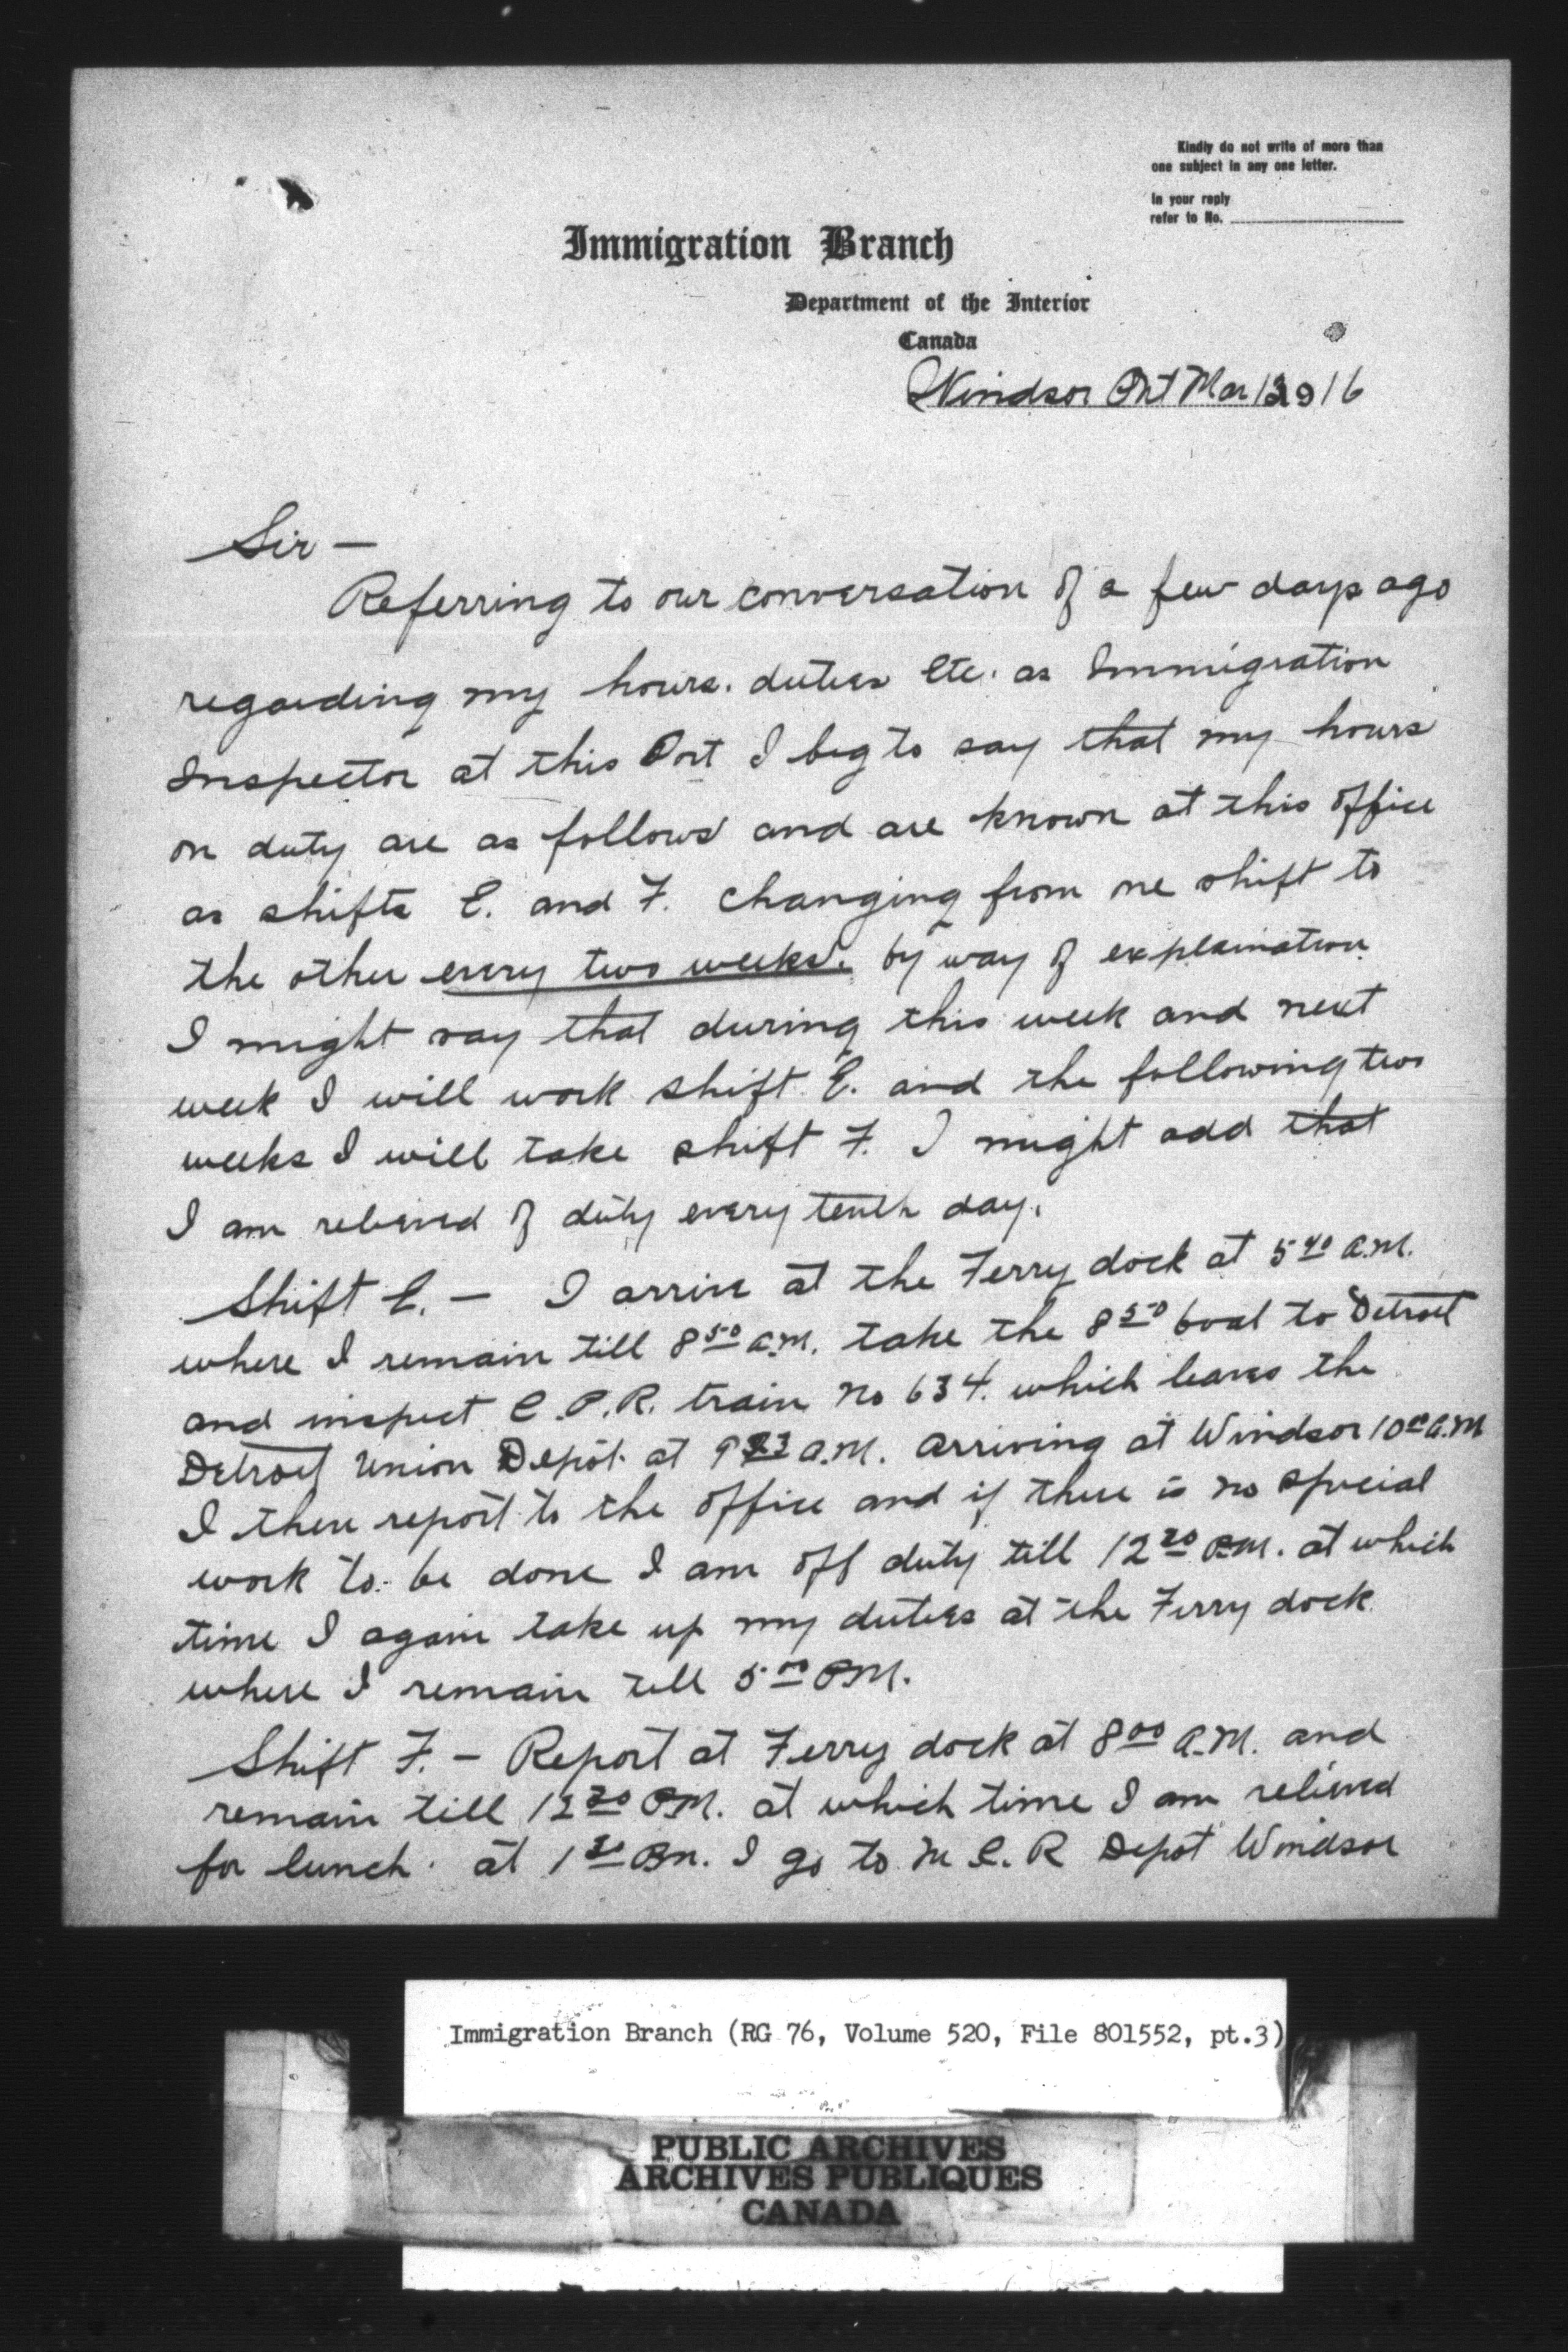 Kindly do not write of more than
one subject in any one letter.
In your reply
refer to No.
Immigration Branch
Department of the Interior
Canada
Windsor Ont Mar 1916
Sir —
Referring to our conversation of a few days ago
regarding my hours. duties Etc. as Immigration
Inspector at this Port I beg to say that my hours
on duty are as follows and are known at this office
as shifts E. and F. changing from one shift to
the other every two weeks. by way of explaination
I might say that during this week and next
week I will work shift E. and the following two
weeks I will take shift F. I might add that
I am relieved of duty every tenth day.
Shift E. — I arrive at the Ferry dock at 5 40 A.M.
where I remain till 8 50 A.M. take the 8 50 boat to Detroit
and inspect C.P.R. train No 634. which leaves the
Detroit Union Depot. at A.M. arriving at Windsor 10 00 A.M
I then report to the office and if there is no special
work to be done I am off duty till 12 20 P.M. at which
time I again take up my duties at the Ferry dock
where I remain till 5 00 P.M.
Shift F. — Report at Ferry dock at 8 00 A.M. and
remain till P.M. at which time I am relieved
for lunch. at P.M. I go to M C. R Depot Windsor
Immigration Branch (RG 76, Volume 520, File 801552, pt.3)
PUBLIC ARCHIVES
ARCHIVES PUBLIQUES
CANADA